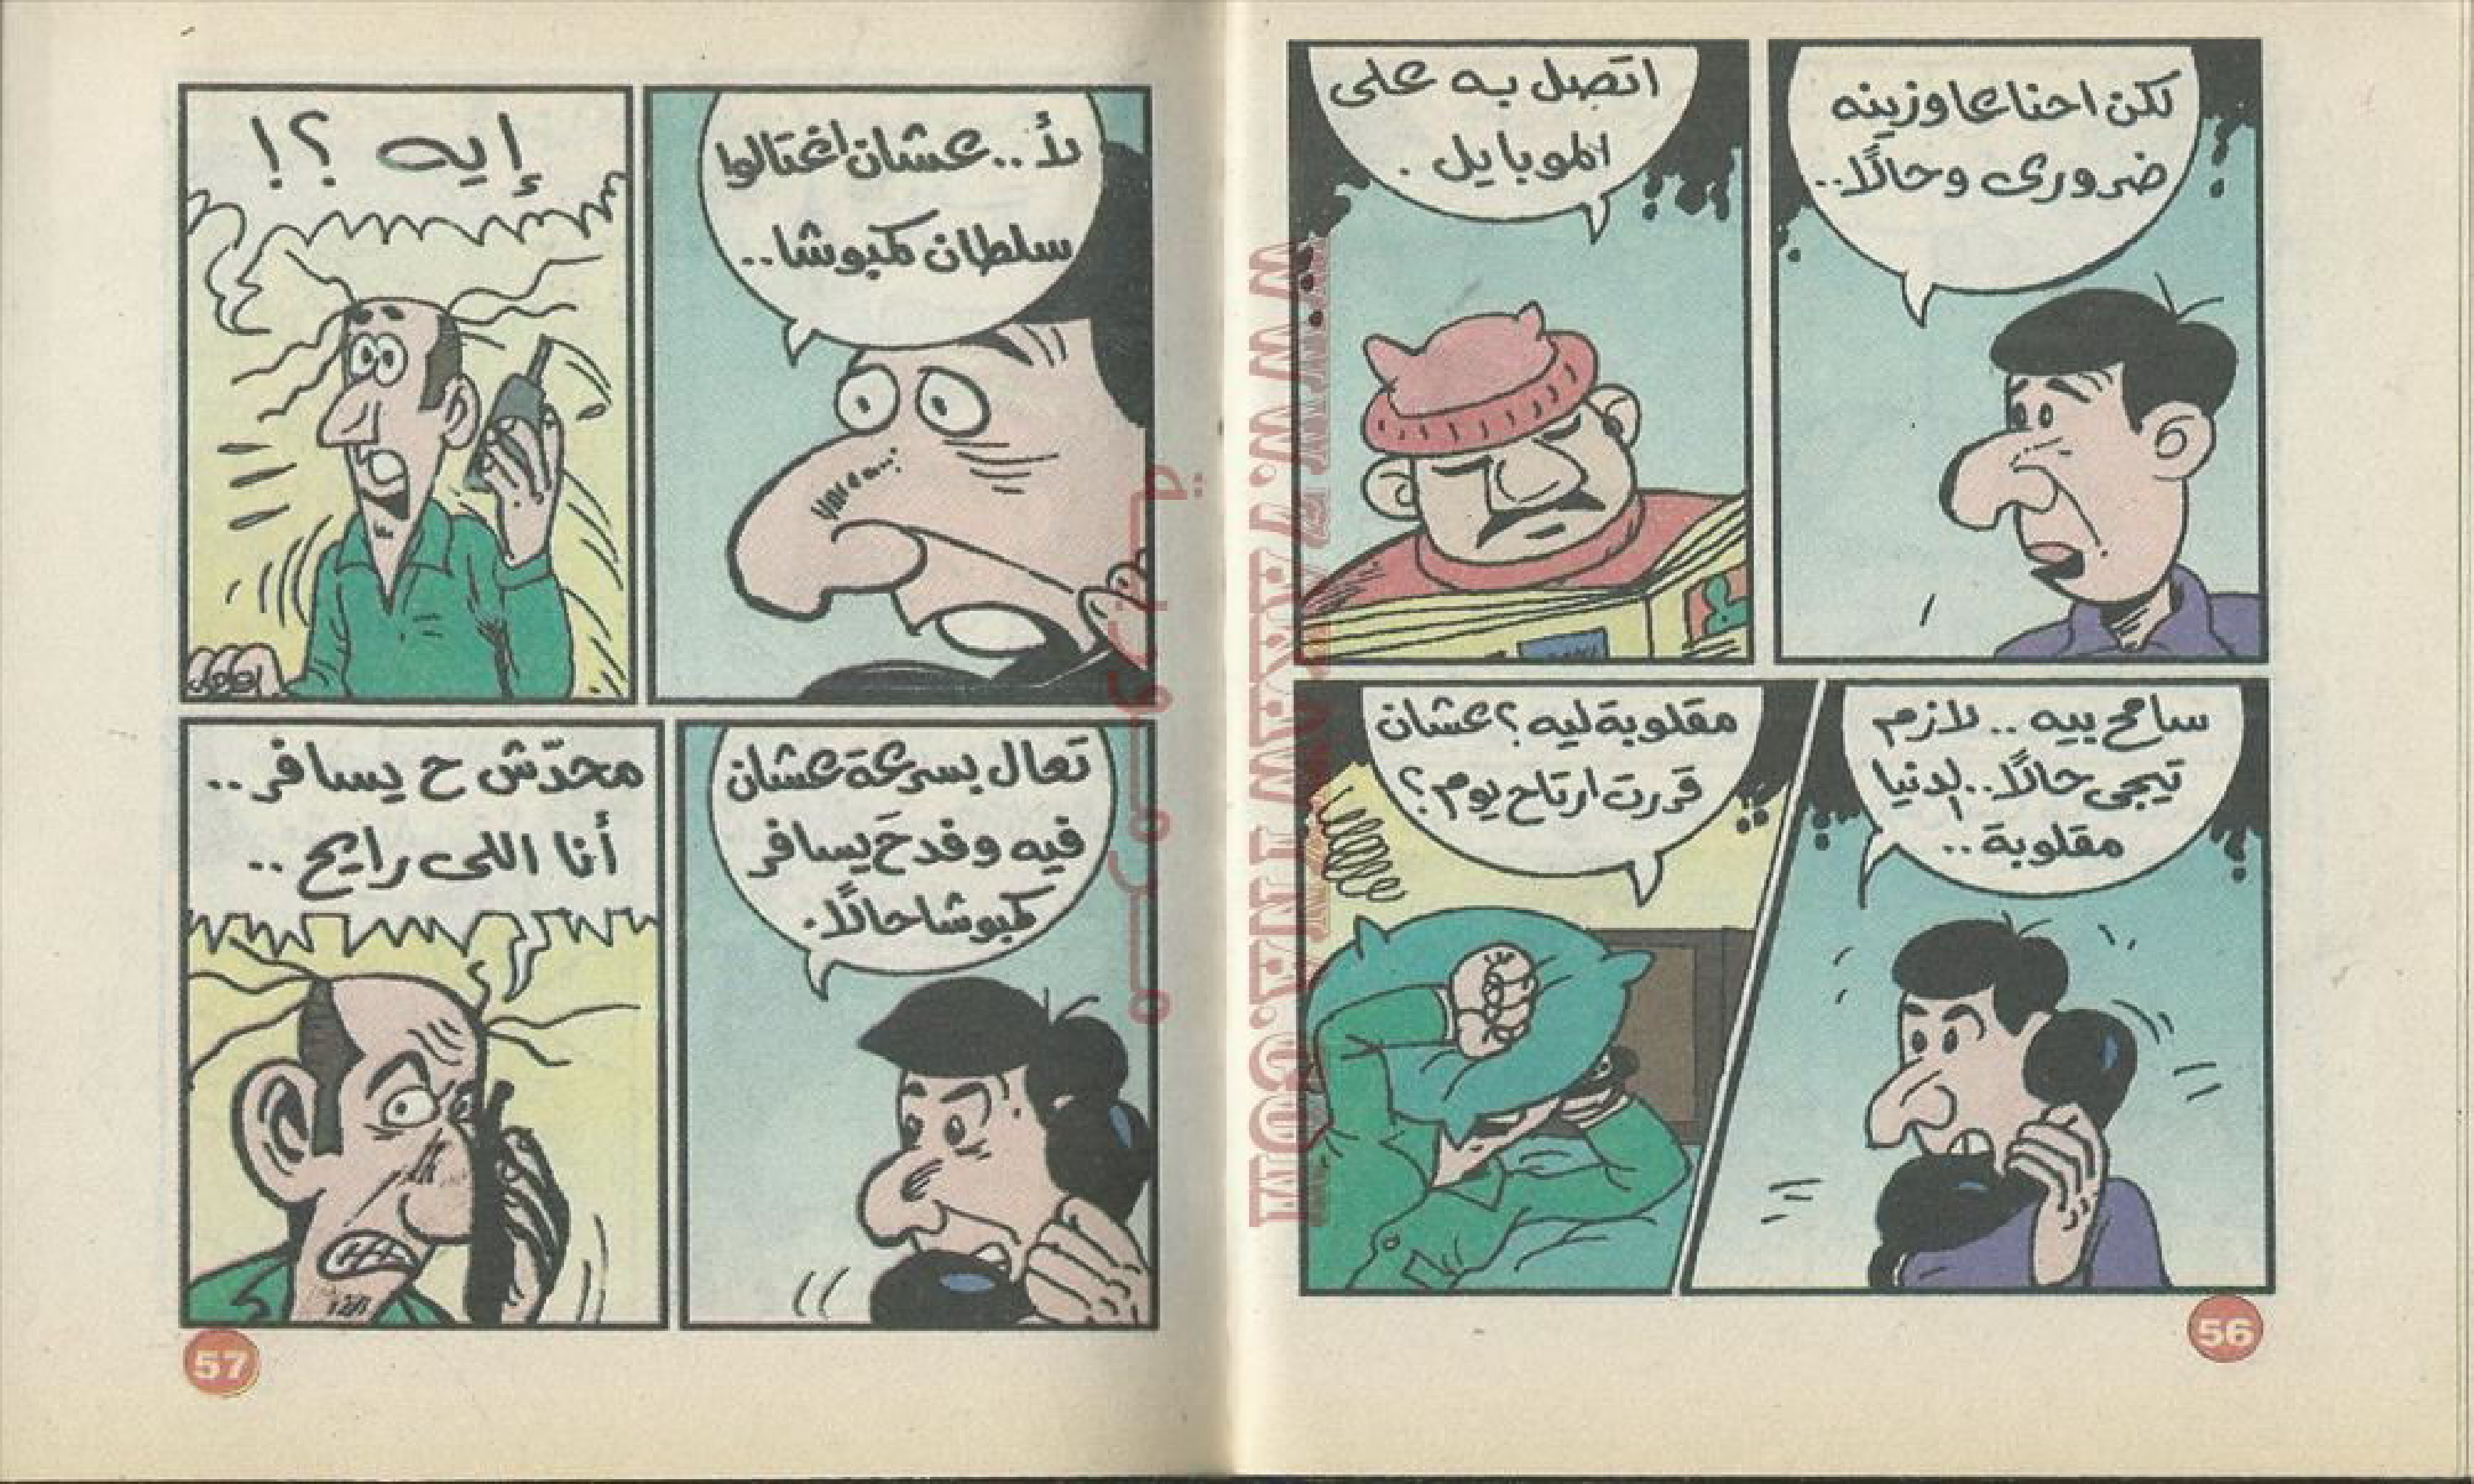 لكن احنا عاوزينه
ضرورى وحالاً..
اتصل به على
الموبايل .
سامح بيه .. لازم
تيجى حالاً.. الدنيا
مقلوبة ..
مقلوبة ليه ؟ عشان
قررت ارتاح يوم ؟
56
لأ .. عشان اغتالوا
سلطان كمبوشا ..
إيه ؟!
تعال بسرعة عشان
فيه وفد حَ يسافر
كمبوشا حالاً.
محدّش ح يسافر ..
أنا اللى رايح ..
57